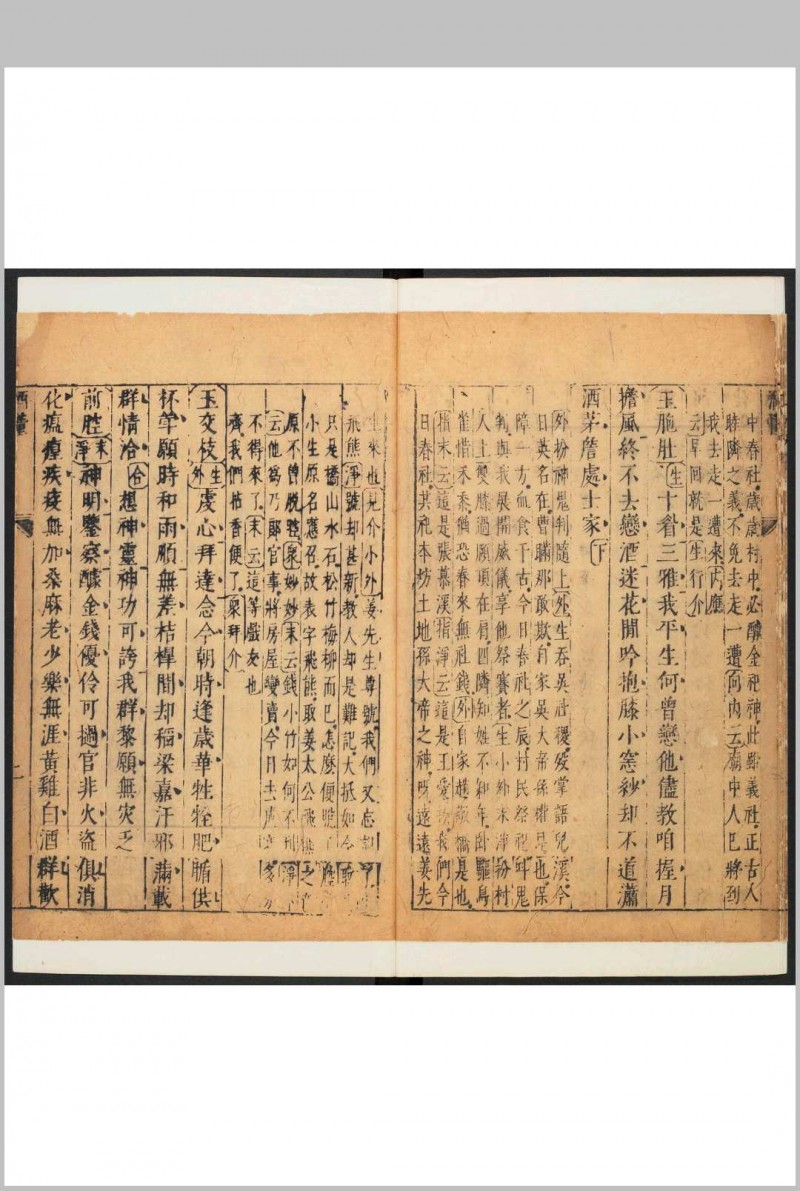 中春社歲歲村中必醵金祀神此雖義社正古人
睦隣之義不免去走一遭向內云廟中人已將到
我去走一遭來內應
云早回就是生行介
玉胞肚生十千三雅我平生何曾戀他儘教咱握月
擔風終不去戀酒迷花閒吟抱膝小窓紗却不道瀟
洒茅簷處士家下
外扮神鬼判隨上外生吞吳社稷歿掌語兒溪今
日英名在曹瞞那敢欺自家吳大帝孫權是也保
障一方血食于古今日春社之辰村民祭祀
判與我展開威儀享他祭賽者生小外末淨扮村
人上雙鬢過項頭在肩四隣知姓不知年臥驅鳥
雀惜禾黍猶恐春來無社錢外自家趙
也
指末云這是張慕溪指淨云這是王愛
我們今
日春社其祀本坊土地孫大帝之神
遠遠姜先
生來也見介小外姜先生尊號我們又忘却了
飛熊淨號却甚新教人却是難記大抵如今
只是橋山水石松竹梅柳而已怎麼便瞻了
小生原名應召故表字飛熊取姜太公
原不曾脫
衆妙妙末云錢小竹如何不到淨
云他爲乃郞官事將房屋變賣今日去
不得來了末云這等戲友也
齊我們拈香便了衆拜介
玉交枝生外虔心拜達念今朝時逢歲華牲牷肥腯供
杯斝願時和雨順無差桔槔閒却稻粱嘉汙邪滿載
群情洽合想神靈神功可誇我群黎願無灾乏
前腔末淨神明鑒察醵金錢優伶可撾官非火盜俱消
化瘟㾮疾疫無加桑麻老少樂無涯黃雞白酒群歡